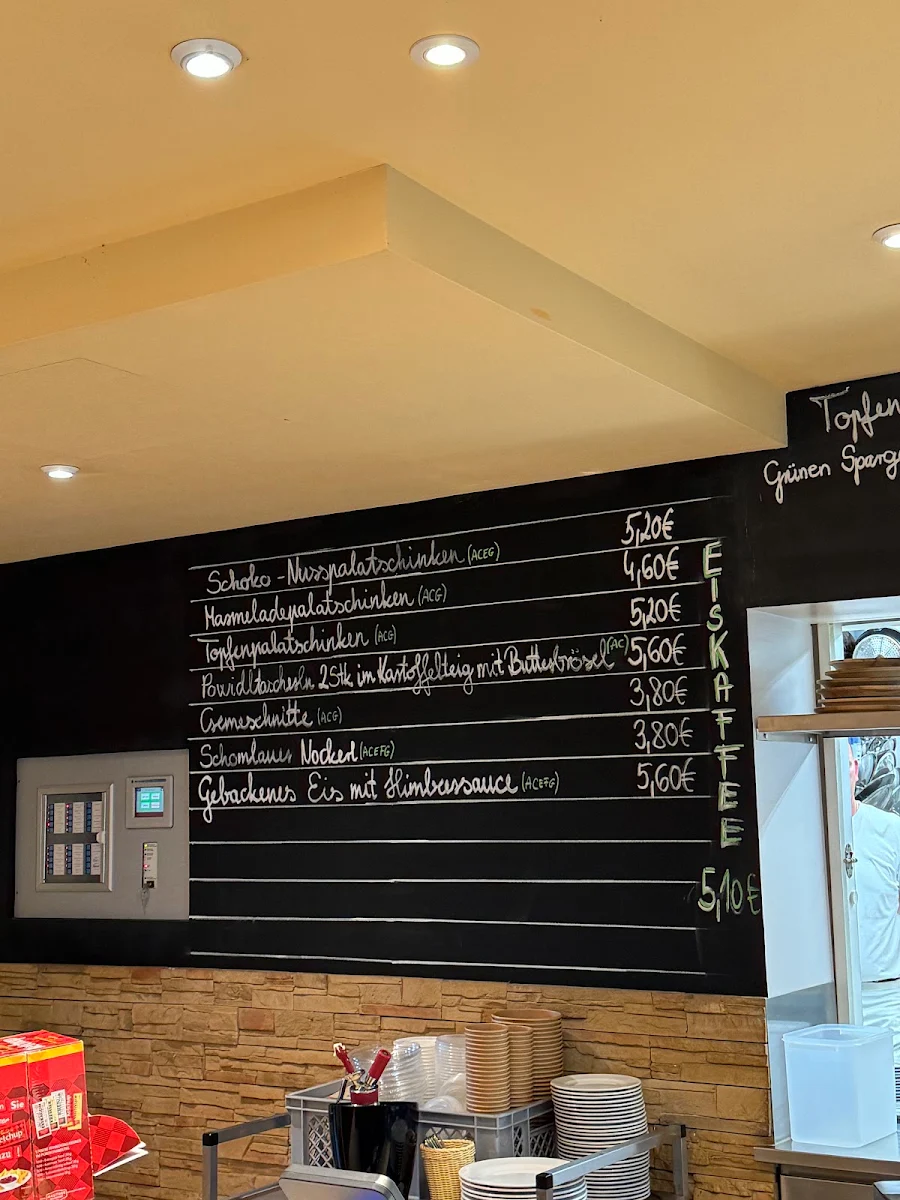 Topfen
Grünen Sparge
Schoko - Nusspalatschinken (ACEG) 5,20€
Marmeladepalatschinken (ACG) 4,60€
Topfenpalatschinken (ACG) 5,20€
Powidltascherln 2Stk im Kartoffelteig mit Butterbrösel (AC) 5,60€
Cremeschnitte (ACG) 3,80€
Schomlauer Nockerl (ACEFG) 3,80€
Gebackenes Eis mit Himbeersauce (ACEFG) 5,60€
EISKAFFEE
5,10€
Sie